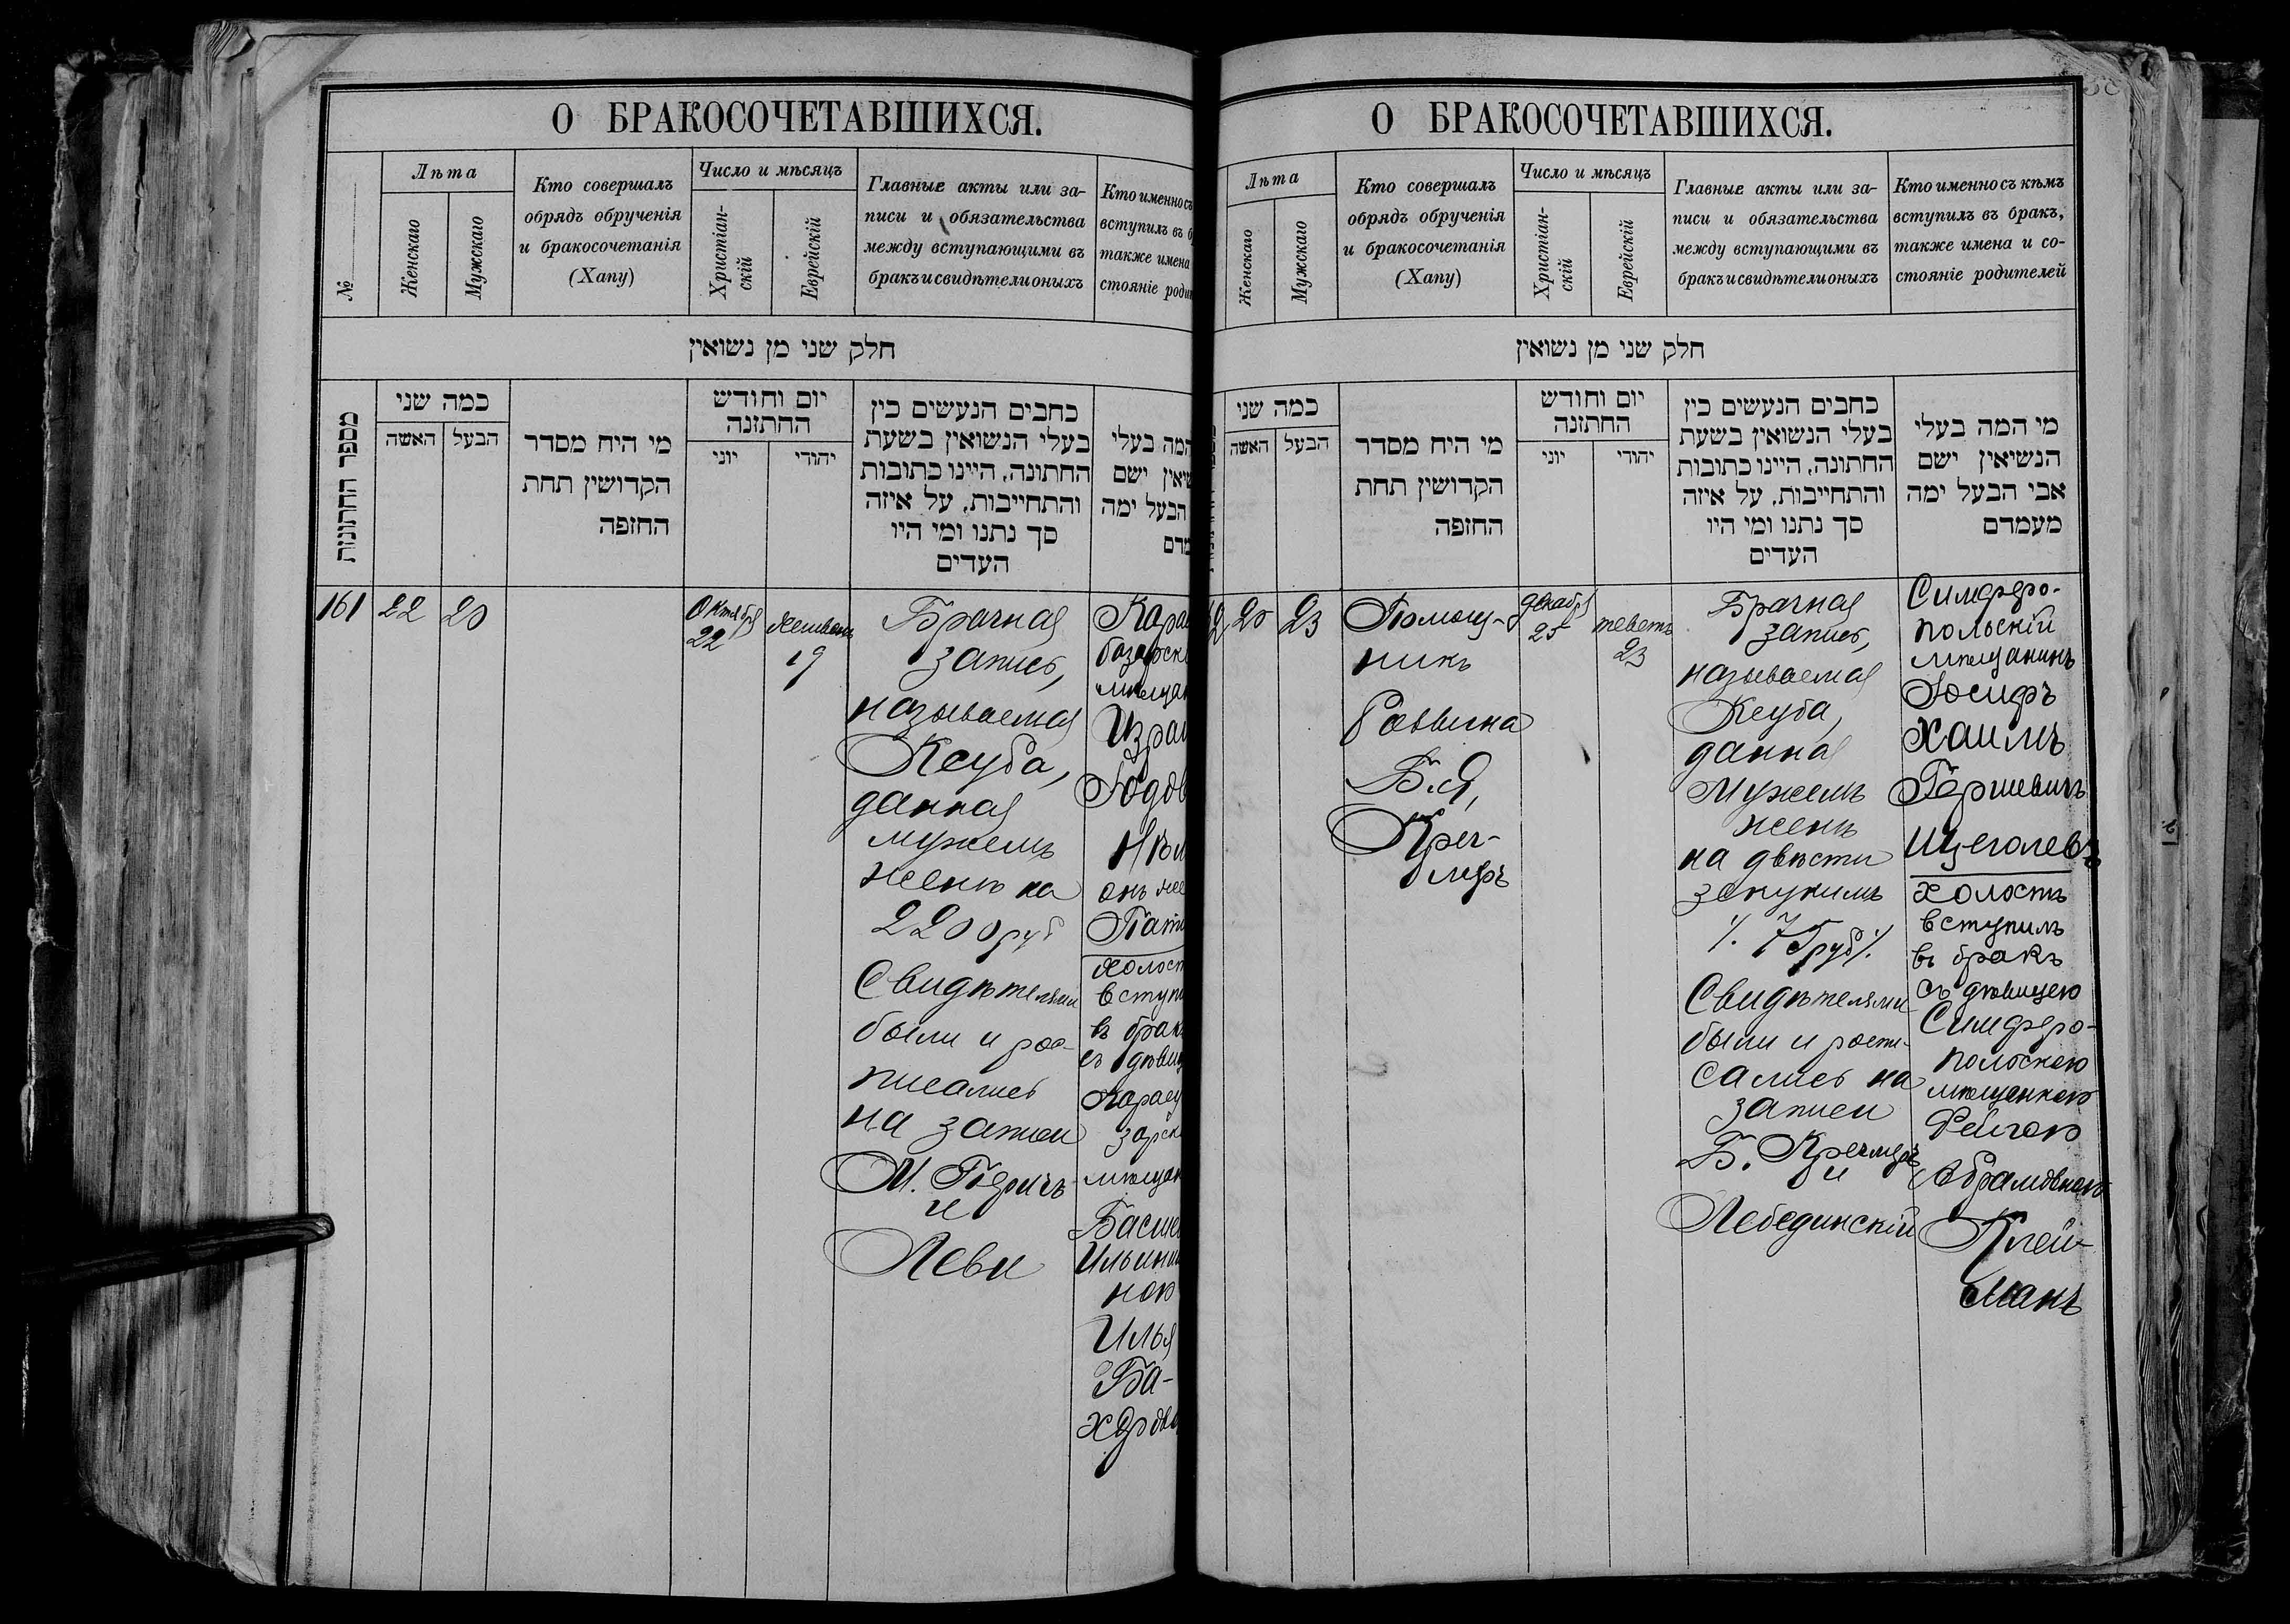 О БРАКОСОЧЕТАВШИХСЯ.
№
Лѣта
Женскаго
Мужскаго
Кто совершалъ
обрядъ обрученія
и бракосочетанія
(Хапу)
Число и мѣсяцъ
Христіан-
скій
Еврейскій
Главные акты или за-
писи и обязательства
между вступающими въ
бракъ и свидѣтели оныхъ
Кто именно съ
вступилъ въ б
также имена
стояніе роди
חלק שני מן נשואין
מספר החתונות
כמה שני
האשה
הבעל
מי היח מסדר
הקדושין תחת
החופה
יום וחודש
החתונה
יוני
יהודי
כחבים הנעשים כין
בעלי הנשואין בשעת
החתונה, היינו כתובות
והתחייבות, על איזה
סך נתנו ומי היו
העדים
המה בעלי
שיאין ישם
הבעל ימה
מדם
161
22
20
Октября
22
Хешванъ
19
Брачная
запись,
называемая
Кеуба,
данная
мужемъ
женѣ на
2200 руб
Свидѣтелями
были и рос-
писались
на записи
М. Геричъ
и
Леви
Кара
базарск
мѣщан
Израи
Іодов
онъ же
Холост
вступи
въ брак
съ дѣвиц
Карасу
зарск
мѣщан
Басше
Ильини
ною
Илья
Ба-
О БРАКОСОЧЕТАВШИХСЯ.
Лѣта
Женскаго
Мужскаго
Кто совершалъ
обрядъ обрученія
и бракосочетанія
(Хапу)
Число и мѣсяцъ
Христіан-
скій
Еврейскій
Главные акты или за-
писи и обязательства
между вступающими въ
бракъ и свидѣтели оныхъ
Кто именно съ кѣмъ
вступилъ въ бракъ,
также имена и со-
стояніе родителей
חלק שני מן נשואין
כמה שני
האשה
הבעל
מי היח מסדר
הקדושין תחת
החופה
יום וחודש
החתונה
יוני
יהודי
כחבים הנעשים כין
בעלי הנשואין בשעת
החתונה, היינו כתובות
והתחייבות, על איזה
סך נתנו ומי היו
העדים
מי המה בעלי
הנשיאין ישם
אבי הבעל ימה
מעמדם
2
20
23
Помощ-
никъ
Раввина
Б. Я,
Креч-
меръ
Декабр
25
теветъ
23
Брачная
запись,
называемая
Кеуба,
данная
Мужемъ
женѣ
на двѣсти
зекукимъ
./. 75 руб ./.
Свидѣтелями
были и роспи-
сались на
записи
Б. Кречмеръ
и
Лебединскій
Симферо-
польскій
мѣщанинъ
Іосифъ
Хаимъ
Гершевичъ
Щеголевъ
холостъ
вступилъ
въ бракъ
съ дѣвицею
Симферо-
польскою
мѣщанкою
Фейгою
Абрамовною
Клей-
манъ